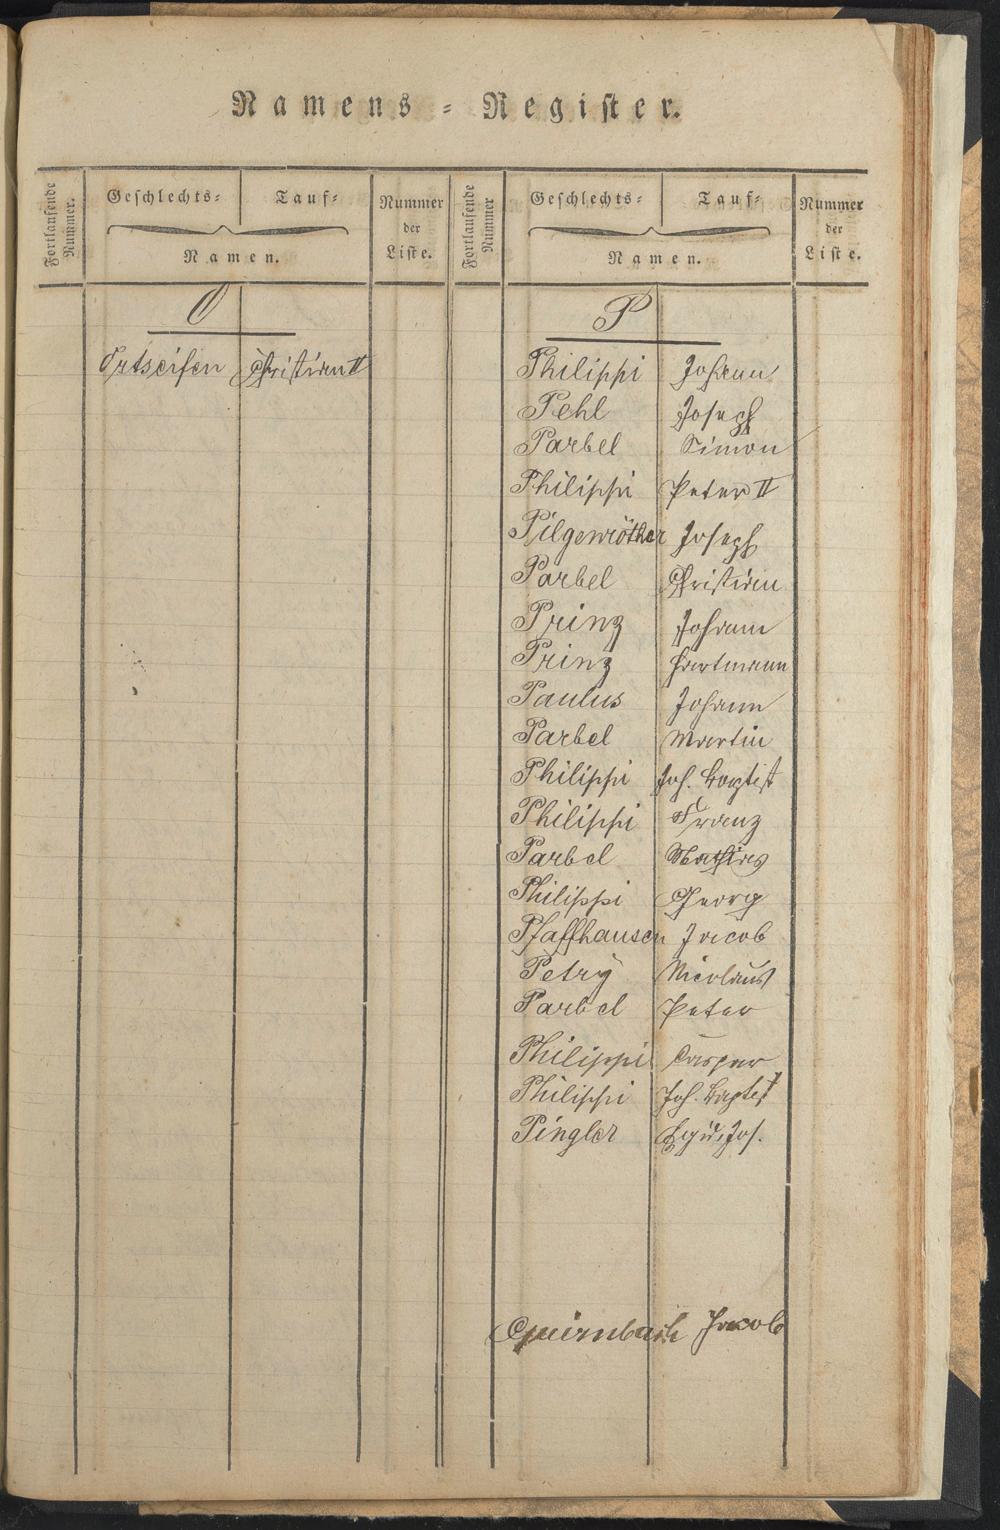 Namens-Register.
Fortlaufende Nummer.
Geschlechts- Tauf-
Namen.
Nummer der Liste.
Fortlaufende Nummer
Geschlechts- Tauf-
Namen.
Nummer der Liste.
O
Ortseifen Christian II
P
Philippi Johann
Pehl Joseph
Parbel Simon
Philippi Peter II
Pilgenröther Joseph
Parbel Christian
Prinz Johann
Prinz Hartmann
Paulus Johann
Parbel Martin
Philippi Joh. Baptist
Philippi Franz
Parbel Mathias
Philippi Georg
Pfaffhausen Jacob
Petrÿ Nicolaus
Parbel Peter
Philippi Casper
Philippi Joh. Baptist
Pingler Egid. Jos.
Quirnbach Jacob